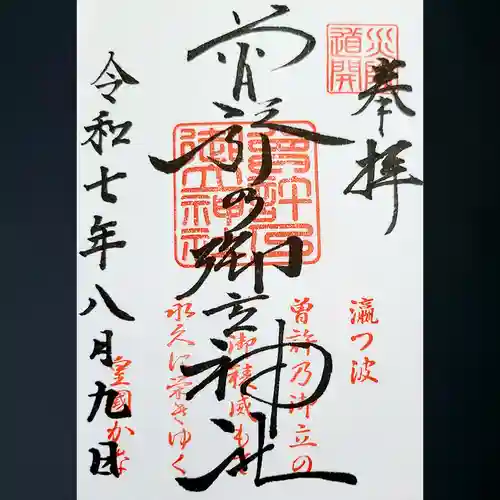 奉拝
災除
道開
曽許乃御立神社
瀛つ波
曽許乃御立の
御稜威も
永久に栄きゆく
皇國かな
令和七年八月九日